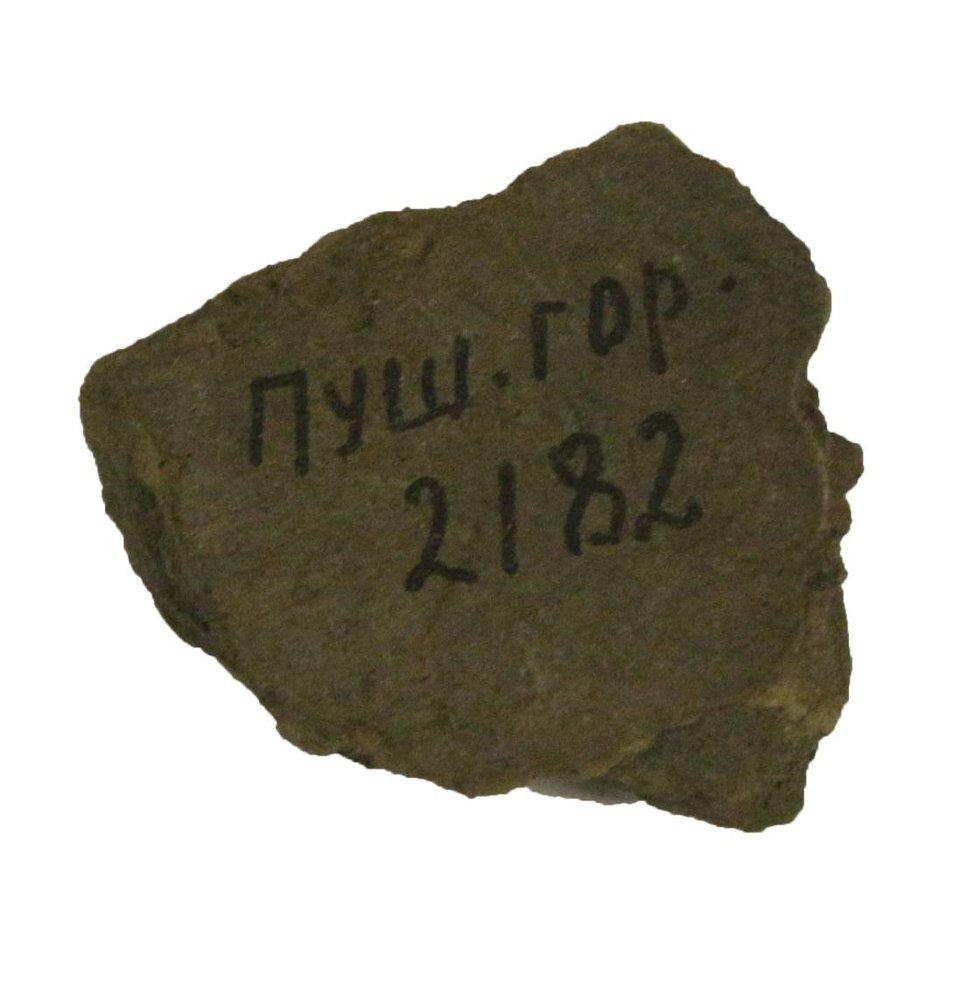 пуш. гор.
2182